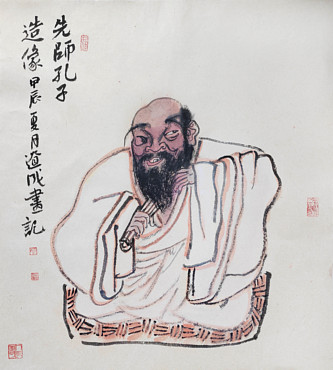 先師孔子
造像甲辰夏月道成書記